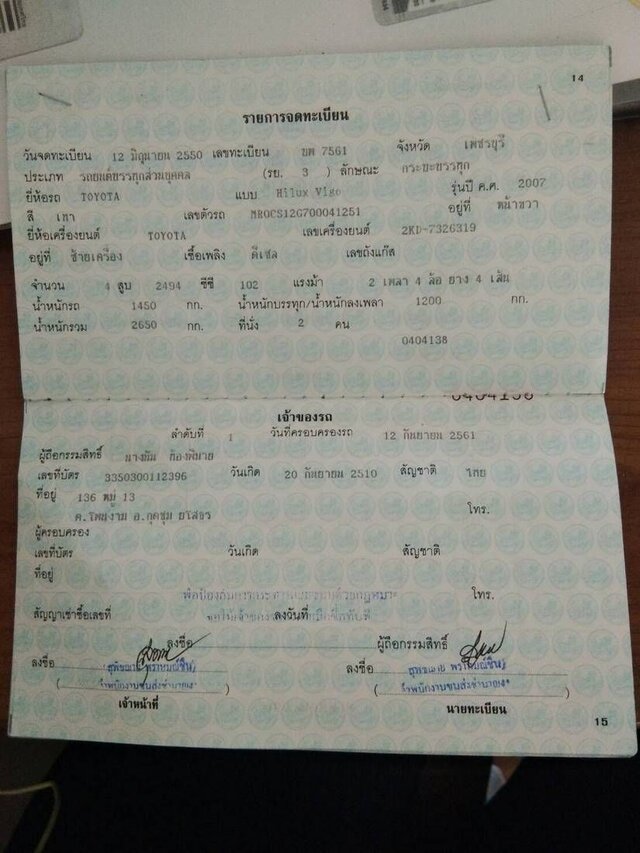 14
รายการจดทะเบียน
วันจดทะเบียน 12 มิถุนายน 2550 เลขทะเบียน บพ 7561 จังหวัด เพชรบุรี
ประเภท รถยนต์บรรทุกส่วนบุคคล (รย. 3 ) ลักษณะ กระบะบรรทุก
ยี่ห้อรถ TOYOTA แบบ Hilux Vigo รุ่นปี ค.ศ. 2007
สี เทา เลขตัวรถ MR0CS12G700041251 อยู่ที่ หน้าขวา
ยี่ห้อเครื่องยนต์ TOYOTA เลขเครื่องยนต์ 2KD-7326319
อยู่ที่ ซ้ายเครื่อง เชื้อเพลิง ดีเซล เลขถังแก๊ส
จำนวน 4 สูบ 2494 ซีซี 102 แรงม้า 2 เพลา 4 ล้อ ยาง 4 เส้น
น้ำหนักรถ 1450 กก. น้ำหนักบรรทุก/น้ำหนักลงเพลา 1200 กก.
น้ำหนักรวม 2650 กก. ที่นั่ง 2 คน
0404138
เจ้าของรถ
ลำดับที่ 1 วันที่ครอบครองรถ 12 กันยายน 2561
ผู้ถือกรรมสิทธิ์ นางมัม
เลขที่บัตร 3350300112396 วันเกิด 20 กันยายน 2510 สัญชาติ ไทย
ที่อยู่ 136 หมู่ 13
ต.โพนงาม อ.กุดชุม ยโสธร โทร.
ผู้ครอบครอง
เลขที่บัตร วันเกิด สัญชาติ
ที่อยู่
โทร.
สัญญาเช่าซื้อเลขที่ ลงวันที่
ลงชื่อ ผู้ถือกรรมสิทธิ์
ลงชื่อ ลงชื่อ
เจ้าหน้าที่ นายทะเบียน
15